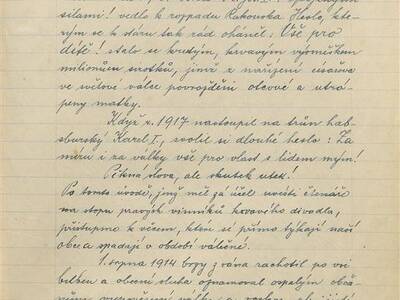 silami! vedlo k rozpadu Rakouska. Heslo, kte-
rým se k stáru tak rád oháněl: Vše pro
dítě! stalo se krutým, krvavým výsměškem
milionům sirotků, jimž z nařízení císařova
ve světové válce povražděni otcové a utrá-
peny matky.
Když r. 1917 nastoupil na trůn hab-
sburský Karel I., zvolil si dlouhé heslo: Za
míru i za války vše pro vlast s lidem mým!
Pěkná slova, ale skutek utek!
Po tomto úvodě, jímž měl za účel uvésti čtenáře
na stopu pravých vinníků krvavého divadla,
přistupme k věcem, které se přímo týkají naší
obce a spadají v období válečné.
1. srpna 1914 brzy z rána rachotil po vsi
buben a obecní sluha oznamoval ospalým obča-